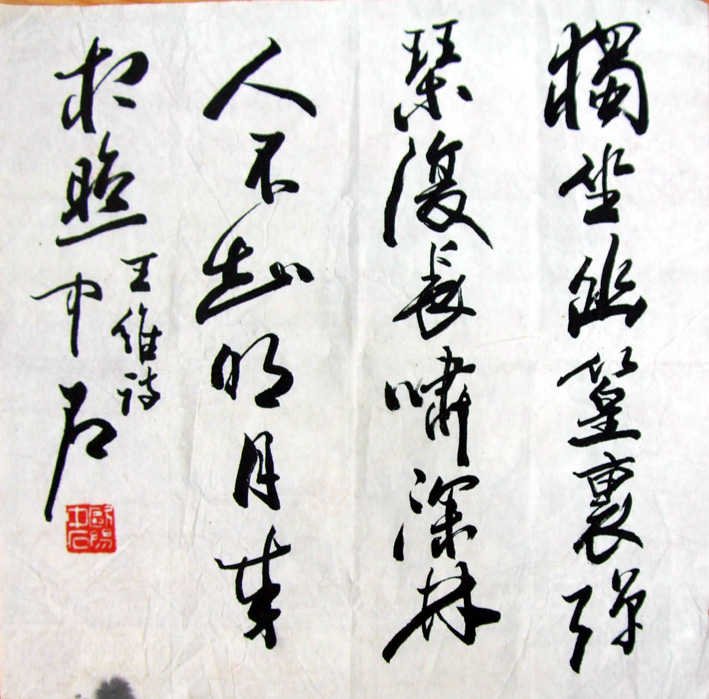 獨坐幽篁裏彈
琴復長嘯深林
人不知明月來
相照
王維詩
中石
歐陽中石